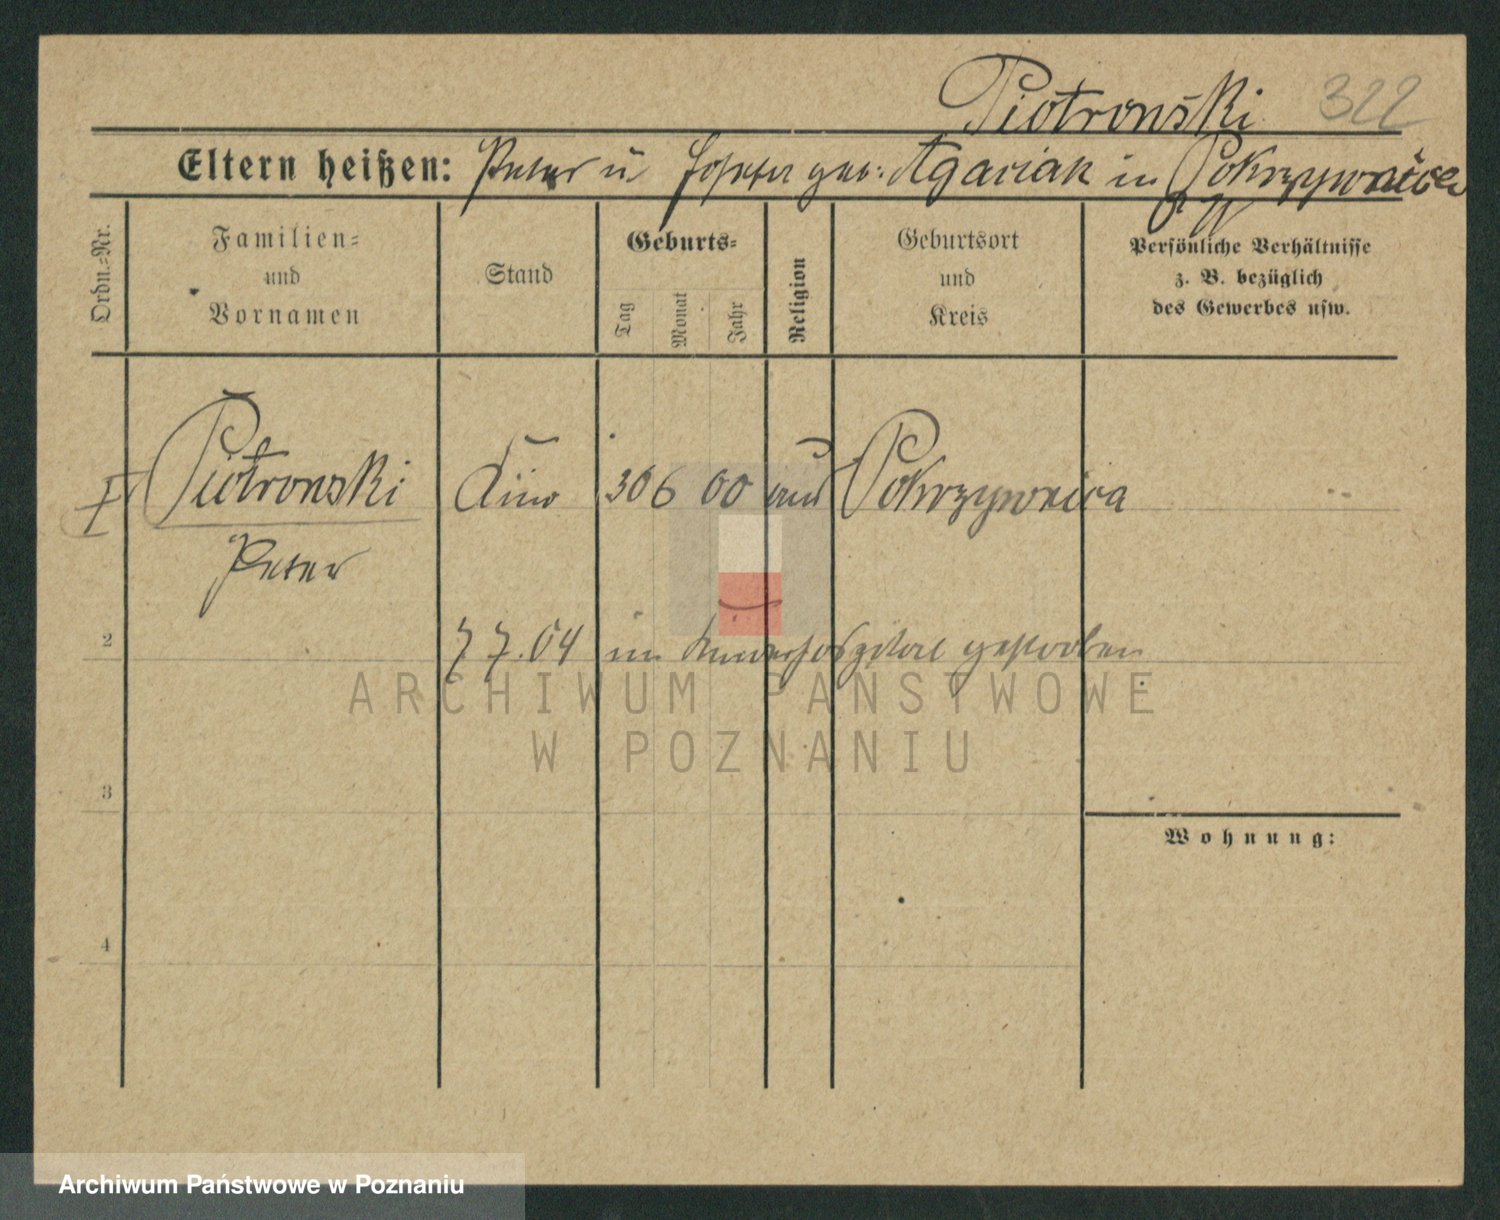 Piotrowski 322
Eltern heißen: Peter u Josefa geb. Agaciak in Pokrzywnica
Ordn.-Nr.
Familien-
und
Vornamen
Stand
Geburts-
Tag
Monat
Jahr
Religion
Geburtsort
und
Kreis
Persönliche Verhältnisse
z. B. bezüglich
des Gewerbes usw.
Piotrowski 30 6 00 Pokrzywnica
Peter
2
7 7. 04 im gestorben
ARCHIWUM PAŃSTWOWE
W POZNANIU
3
Wohnung:
4
Archiwum Państwowe w Poznaniu